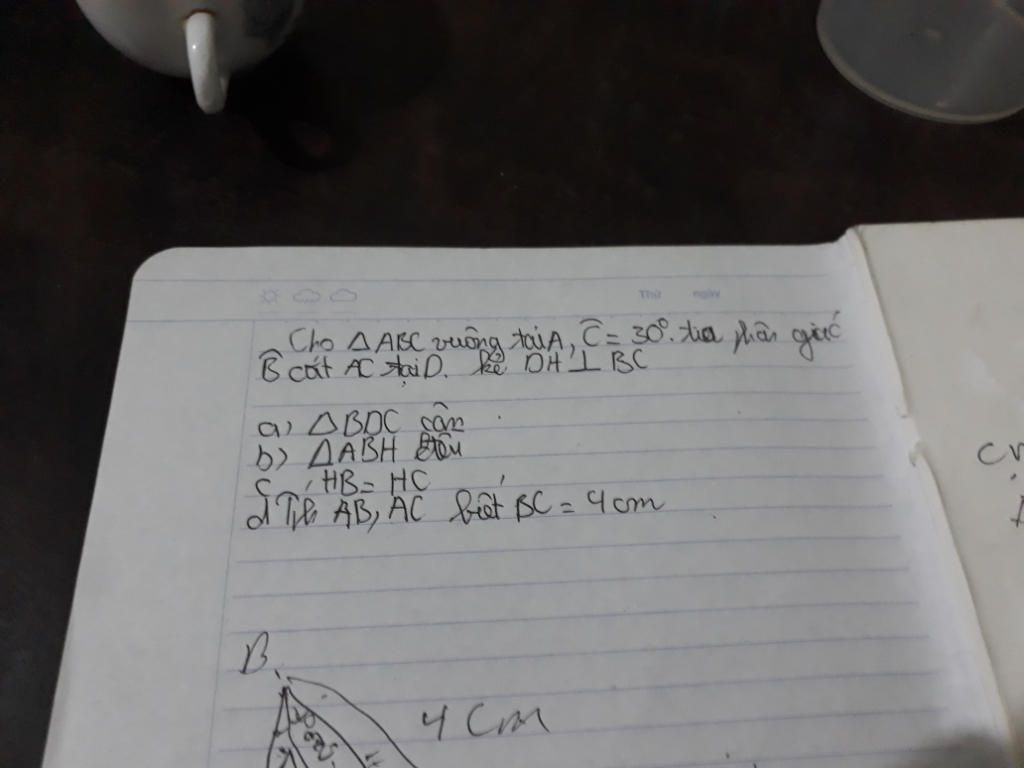 Thứ ngày
Cho △ABC vuông tại A, Ĉ = 30°. tia phân giác
B̂ cắt AC tại D. kẻ DH ⊥ BC
a) △BDC cân
b) △ABH đều
c, HB = HC
d Tính AB, AC biết BC = 4cm
B
4 Cm